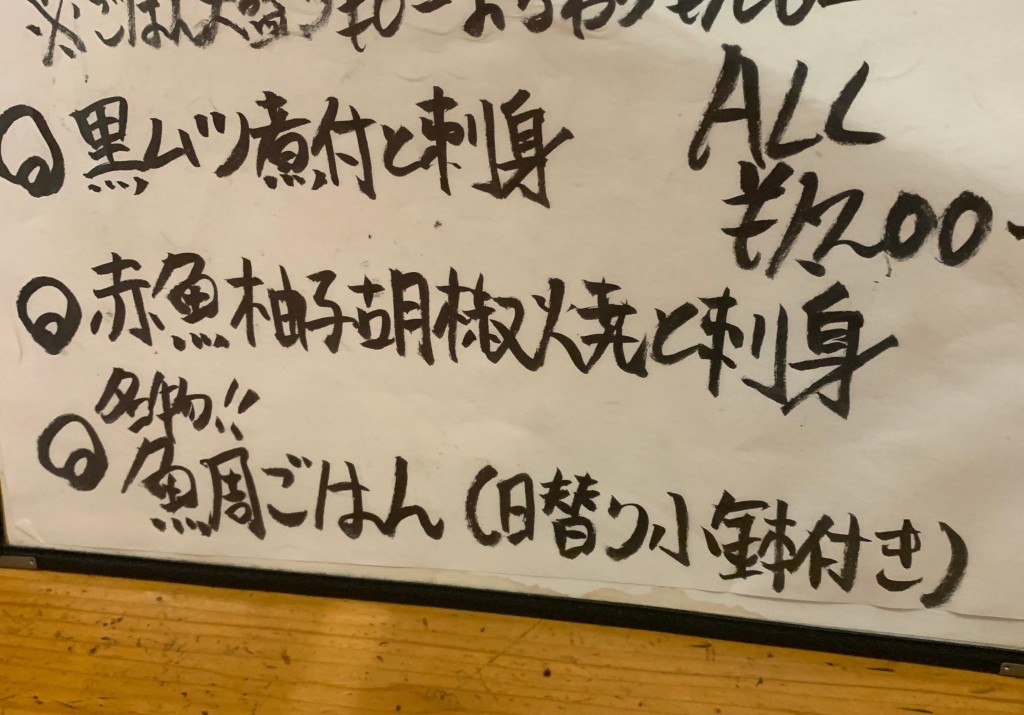 ※ごはん大盛り
ALL
¥1,200-
黒ムツ煮付と刺身
赤魚柚子胡椒焼と刺身
名物!!
魚周ごはん(日替り小鉢付き)